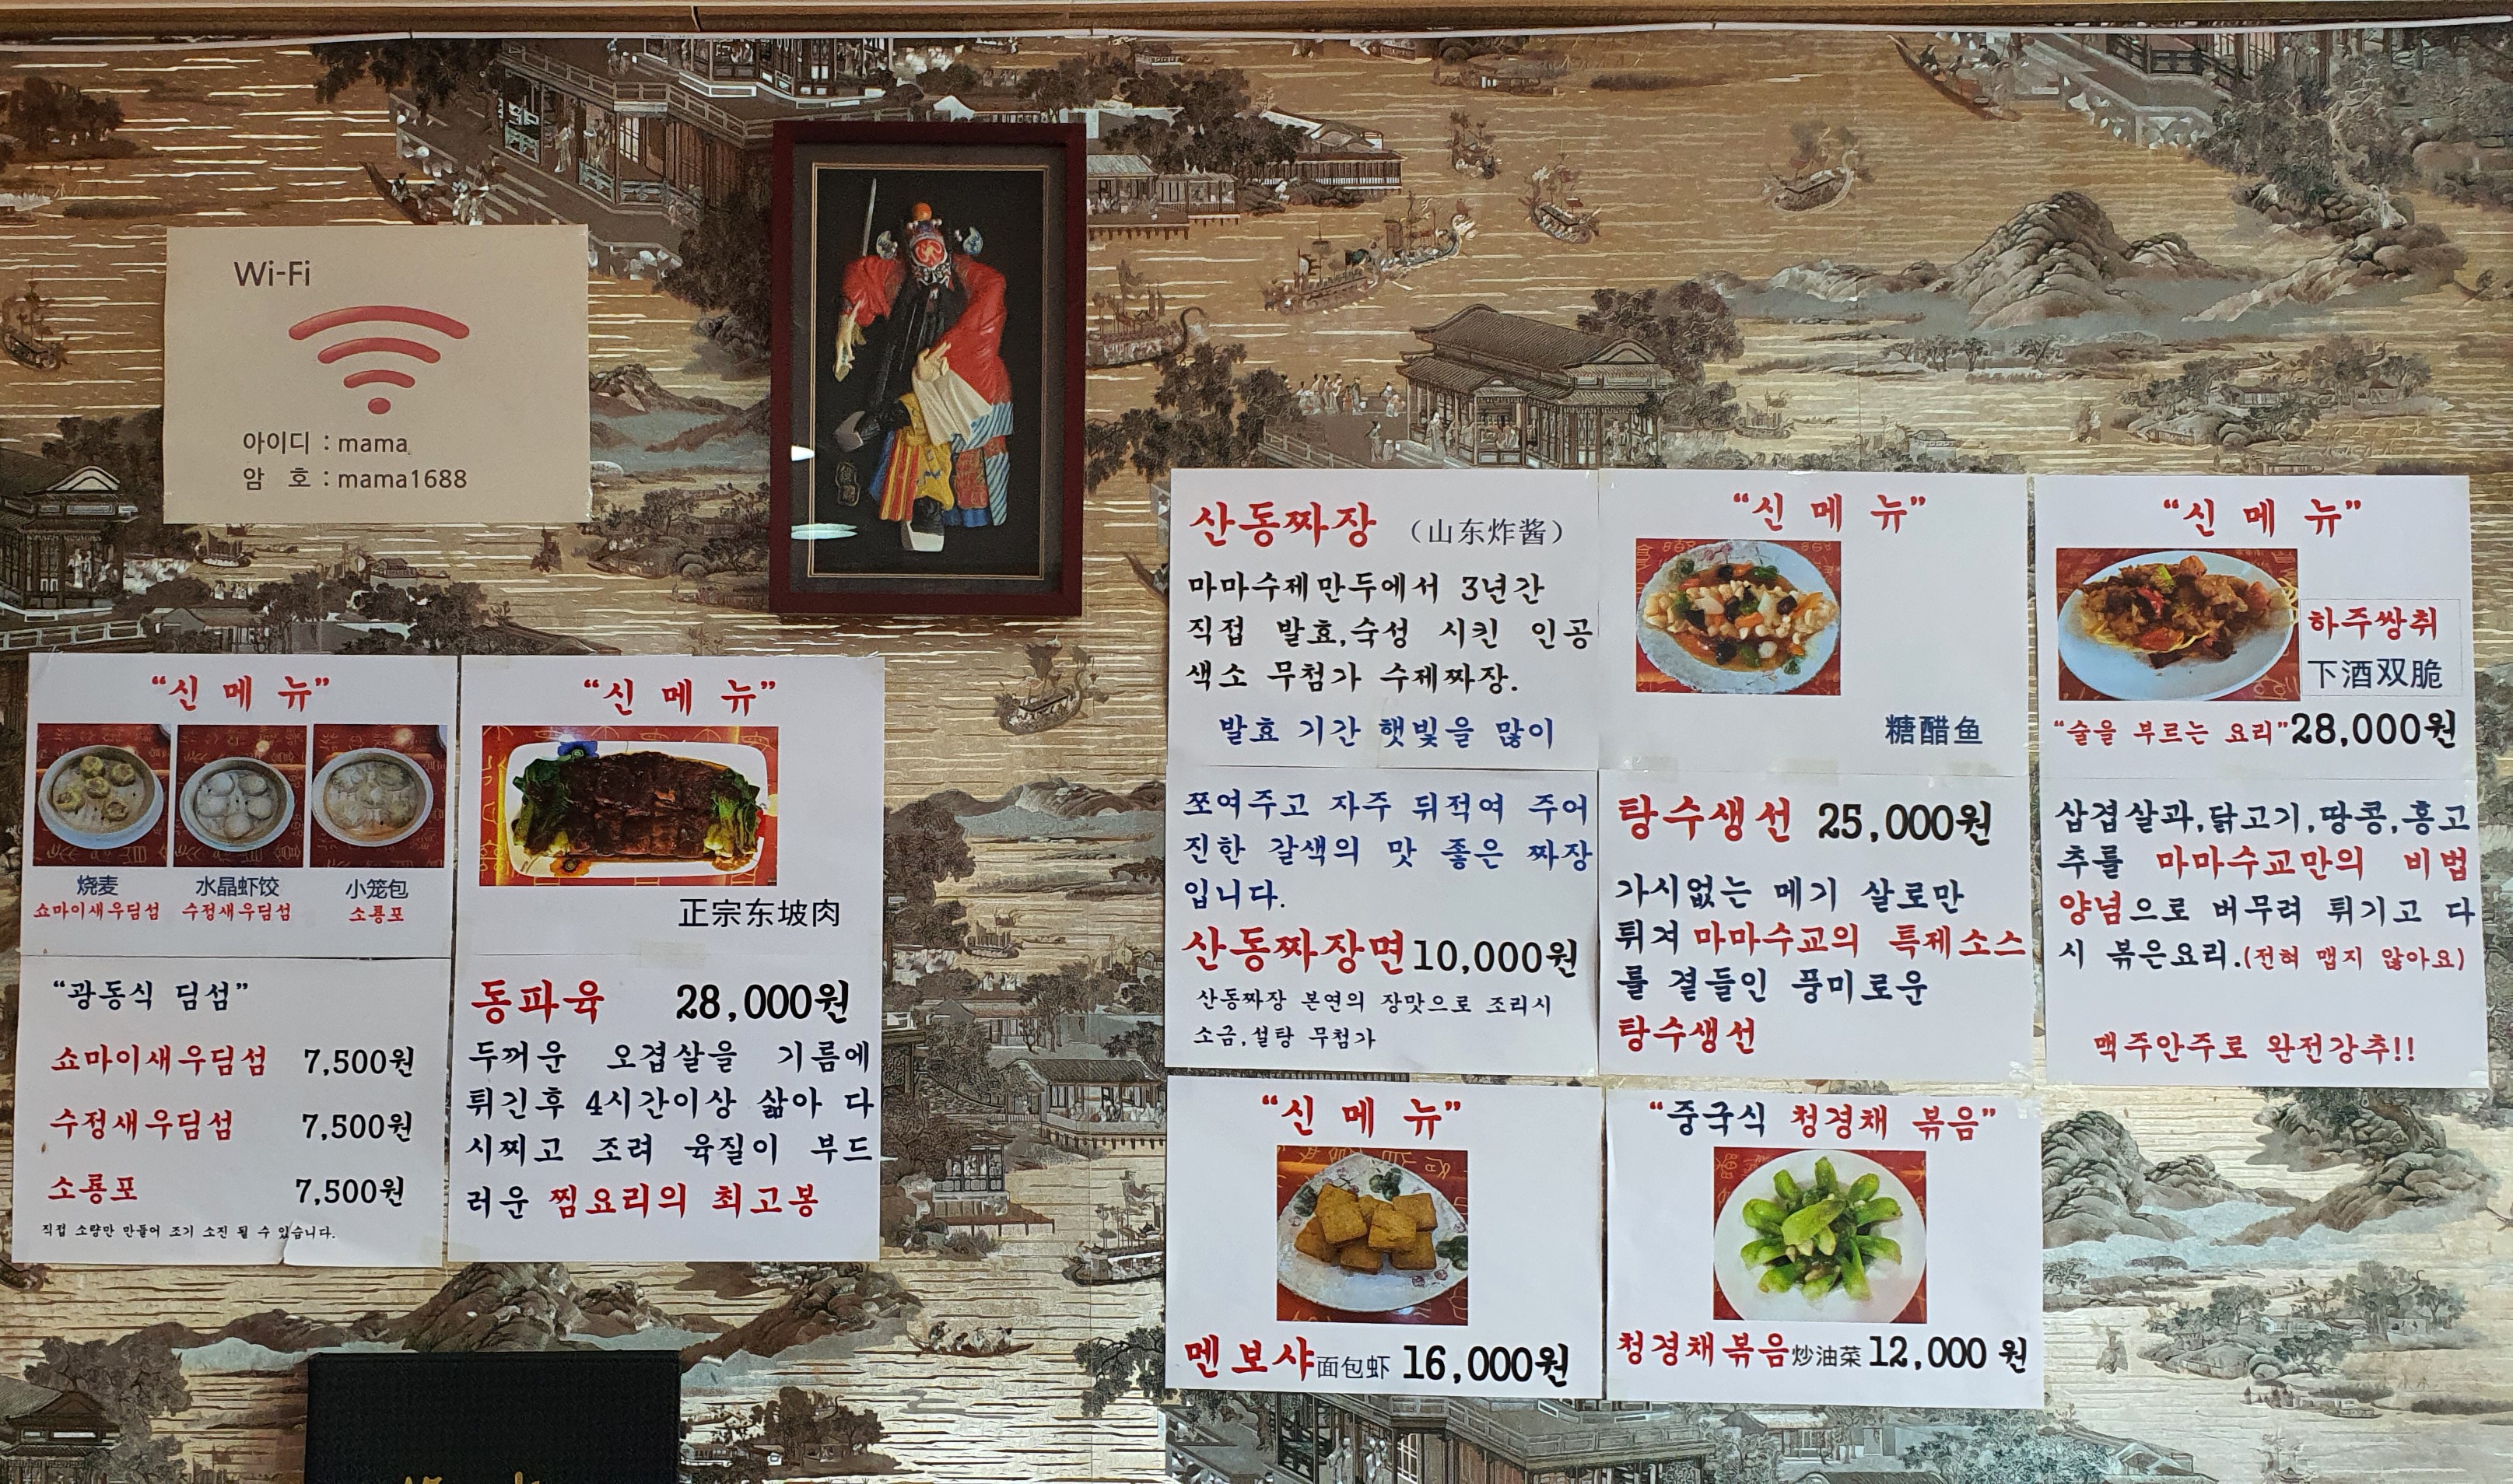 Wi-Fi
아이디 : mama
암 호 : mama1688
“신 메 뉴”
烧麦 水晶虾饺 小笼包
쇼마이새우딤섬 수정새우딤섬 소룡포
“광동식 딤섬”
쇼마이새우딤섬 7,500원
수정새우딤섬 7,500원
소룡포 7,500원
직접 소량만 만들어 조기 소진 될 수 있습니다.
“신 메 뉴”
正宗东坡肉
동파육 28,000원
두꺼운 오겹살을 기름에
튀긴후 4시간이상 삶아 다
시찌고 조려 육질이 부드
러운 찜요리의 최고봉
산동짜장 (山东炸酱)
마마수제만두에서 3년간
직접 발효,숙성 시킨 인공
색소 무첨가 수제짜장.
발효 기간 햇빛을 많이
쪼여주고 자주 뒤적여 주어
진한 갈색의 맛 좋은 짜장
입니다.
산동짜장면10,000원
산동짜장 본연의 장맛으로 조리시
소금,설탕 무첨가
“신 메 뉴”
糖醋鱼
탕수생선 25,000원
가시없는 메기 살로만
튀겨 마마수교의 특제소스
를 곁들인 풍미로운
탕수생선
“신 메 뉴”
하주쌍취
下酒双脆
“술을 부르는 요리”28,000원
삼겹살과,닭고기,땅콩,홍고
추를 마마수교만의 비법
양념으로 버무려 튀기고 다
시 볶은요리.(전혀 맵지 않아요)
맥주안주로 완전강추!!
“신 메 뉴”
멘보샤面包虾 16,000원
“중국식 청경채 볶음”
청경채볶음炒油菜 12,000 원